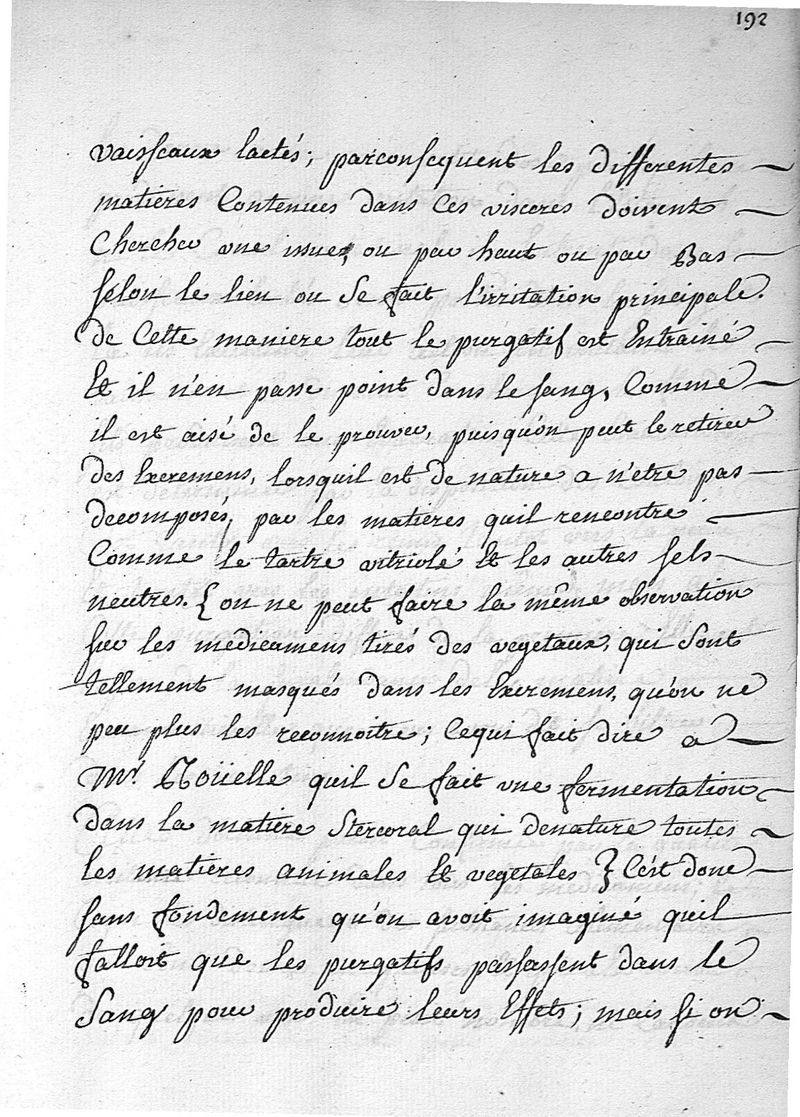 192
vaisseaux lactés; parconsequent les differentes
matieres Contenues dans Ces visceres doivent
Chercher une issue, ou par haut ou par Bas
sélon le lieu ou Se fait l'irritation principale.
de Cette maniere tout le purgatif est Entrainé
Et il n'en passe point dans le sang, Comme
il est aisé de le prouver, puisqu'on peut le retirer
des Excremens, lorsquil est de nature a n'etre pas
decomposés, par les matieres quil rencontre
Comme le tartre vitriolé Et les autres sels
neutres. { on ne peut faire la même observation
sur les médicamens tirés des vegetaux, qui Sont
tellement masqués dans les Excremens, qu'on ne
peu plus les reconnoitre; Cequi fait dire a
Mr. Roüelle quil Se fait une fermentation
dans la matiere Stercoral qui denature toutes
les matieres animales Et vegetales } C'est donc
sans fondement qu'on avoit imaginé quil
falloit que les purgatifs passassent dans le
Sang pour produire leurs Effets; mais si on